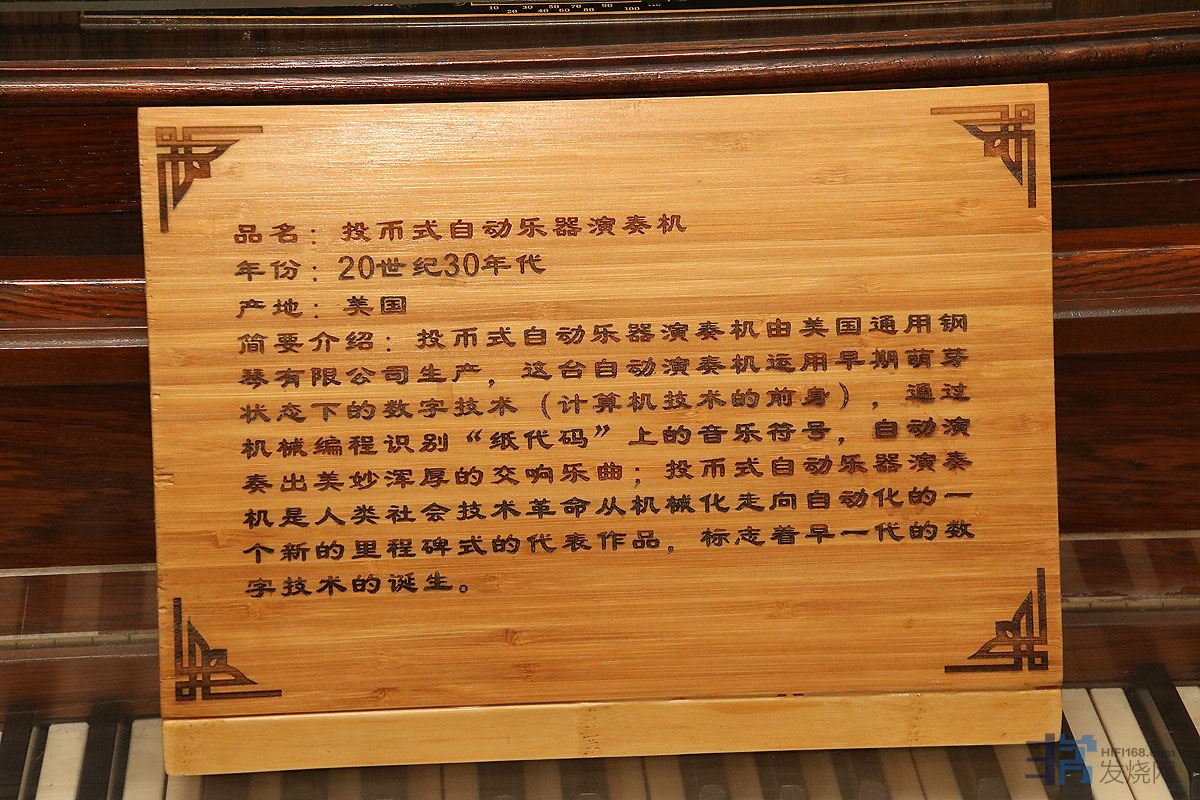 10 20 30 50 70 90
20 40 60 80 100 110
品名：投币式自动乐器演奏机
年份：20世纪30年代
产地：美国
简要介绍：投币式自动乐器演奏机由美国通用钢
琴有限公司生产，这台自动演奏机运用早期萌芽
状态下的数字技术（计算机技术的前身），通过
机械编程识别“纸代码”上的音乐符号，自动演
奏出美妙浑厚的交响乐曲；投币式自动乐器演奏
机是人类社会技术革命从机械化走向自动化的一
个新的里程碑式的代表作品，标志着早一代的数
字技术的诞生。
HIFI168.com
发烧网